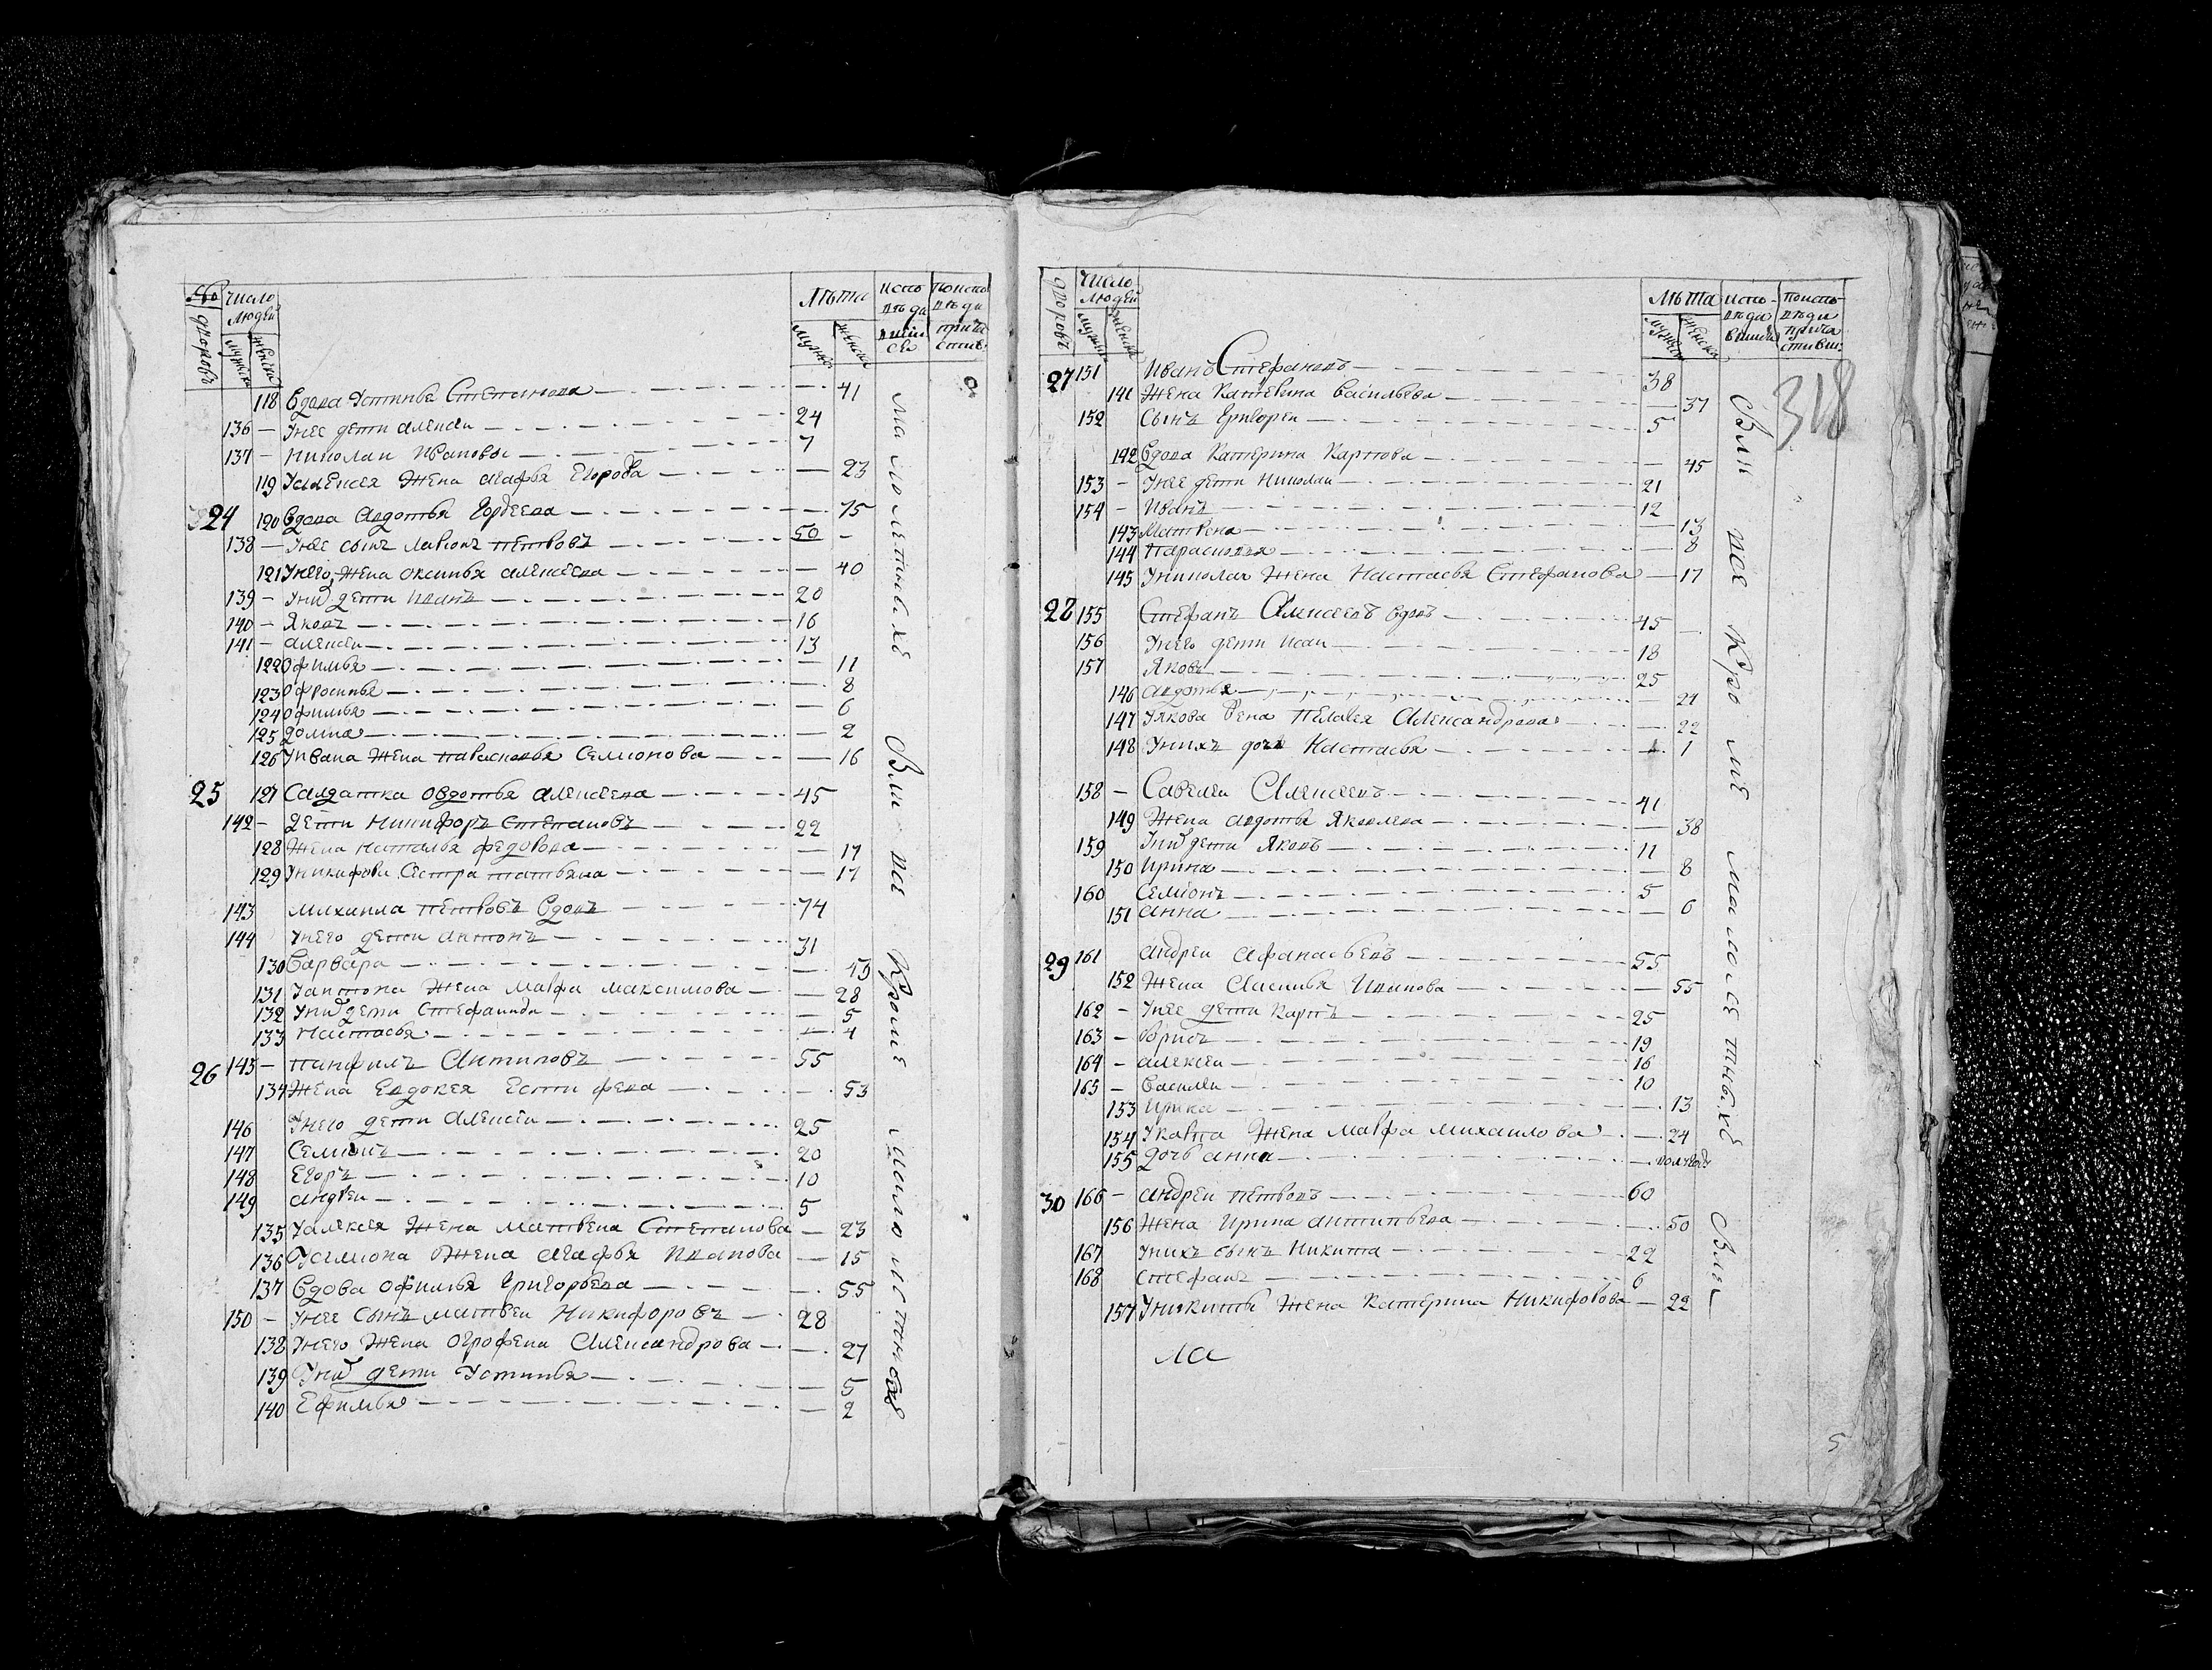 число
людей
дворовъ
мужеска
женска
лѣта
мужеска
женска
испо
вѣда
вшии
ся
поиспо
вѣди
прича
стив:
118 Вдова Устинья Степанова 41
136 — Унее дети алексеи 24
137 — николаи Ивановы 7
119 Уалексея Жена агафья Егорова — 23
24 120 Вдова Авдотья Гордеева — 75
138 — Унее сынъ лавионъ петровъ 50 -
121 Унего Жена оксинья алексеева — 40
139 — Уних дети иванъ 20
140 — Яковъ 16
141 — алексеи 13
122 Офимья — 11
123 Офросинья — 8
124 Офимья — 6
125 домна — 2
126 Уивана Жена парасковья Семионова — 16
25 127 Салдатка овдотья алексеева 45
142 — дети Никифоръ Степановъ 22
128 Жена наталья федорова — 17
129 Уникифора Сестра татьяна — 17
143 михаила петровъ вдовъ 74
144 Унего дети антонъ 31
130 Варвара — 45
131 Уантона Жена Мавра максимова — 28
132 Уних дети Стефанида — 5
133 Настасья — 4
26 145 — панфилъ Антиповъ 55
134 Жена Евдокея Естифеева — 53
146 Унего дети алексеи 25
147 Семионъ 20
148 Егоръ 10
149 андреи 5
135 Уалексея Жена Матвена Степанова — 23
136 Усимиона Жена агафья Иванова — 15
137 Вдова офимья Григорьева — 55
150 — Унее Сынъ матвеи Никифоровъ 28
138 Унего Жена огрофена Александрова — 27
139 Уних дети Устинья — 5
140 Ефимья — 2
Вси вся Кроме малолетныхъ
дворовъ
число
людей
мужеска
женска
лѣта
мужеска
женска
испо-
вѣда
вшиися
поиспо-
вѣди
прича
стивш:
318
27 151 Иванъ Стефановъ 38
141 Жена Катерина Васильева — 37
152 Сынъ Григореи 5
142 Вдова Катерина Карпова — 45
153 — Унее дети Николаи 21
154 — Иванъ 12
143 Матвена — 13
144 Парасковья — 8
145 Униколая Жена Настасья Стефанова — 17
28 155 Стефанъ Алексеевъ вдовъ 45
156 Унего дети Исаи 18
157 Яковъ 25
146 авдотья — 21
147 Уякова Жена Пелагея Александрова — 22
148 Унихъ дочь Настасья — 1
158 — Савелеи Алексеевъ 41
149 Жена авдотья Яковлева — 38
159 Уних дети Яковъ 11
150 Ирина — 8
160 Семионъ 5
151 анна — 6
29 161 андреи афанасьевъ 55
152 Жена Аксинья Иванова — 55
162 — Унее дети Карпъ 25
163 — борисъ 19
164 — алексеи 16
165 — Василеи 10
153 Ирина — 13
154 Укарпа Жена Мавра михаилова — 24
155 Дочь анна — полгода
30 166 — андреи петровъ 60
156 Жена Ирина антипьева — 50
167 Унихъ сынъ Никита 22
168 стефанъ 6
157 Уникиты Жена Катерина Никифорова — 22
Вси вся Кроме малолетныхъ
ла
5